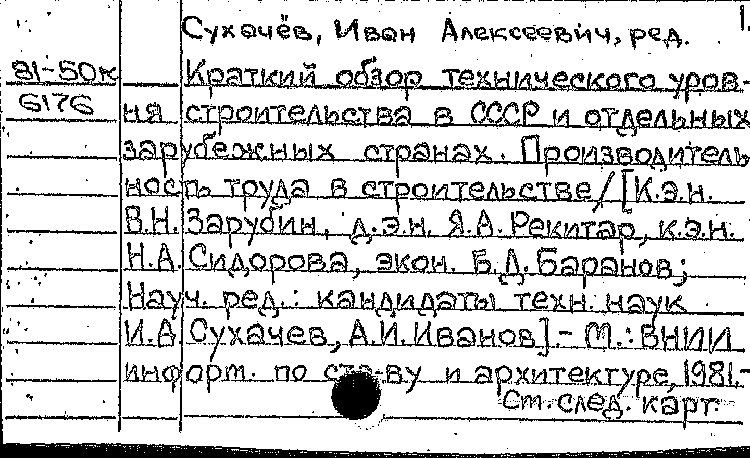 1.
Сухачёв, Иван Алексеевич, ред.
81-50к Краткий обзор технического уров-
6176 ня строительства в СССР и отдельных
зарубежных странах. Производитель
ность труда в строительстве / [К.э.н.
В.Н. Зарубин, д.э.н. Я.А. Рекитар, к.э.н.
Н.А. Сидорова, экон. Б.Д. Баранов;
Науч. ред.: кандидаты техн. наук
И.А Сухачев, А.И. Иванов]. - М.: ВНИИ
информ. по ств-ву и архитектуре, 1981.-
Ст. след. карт.